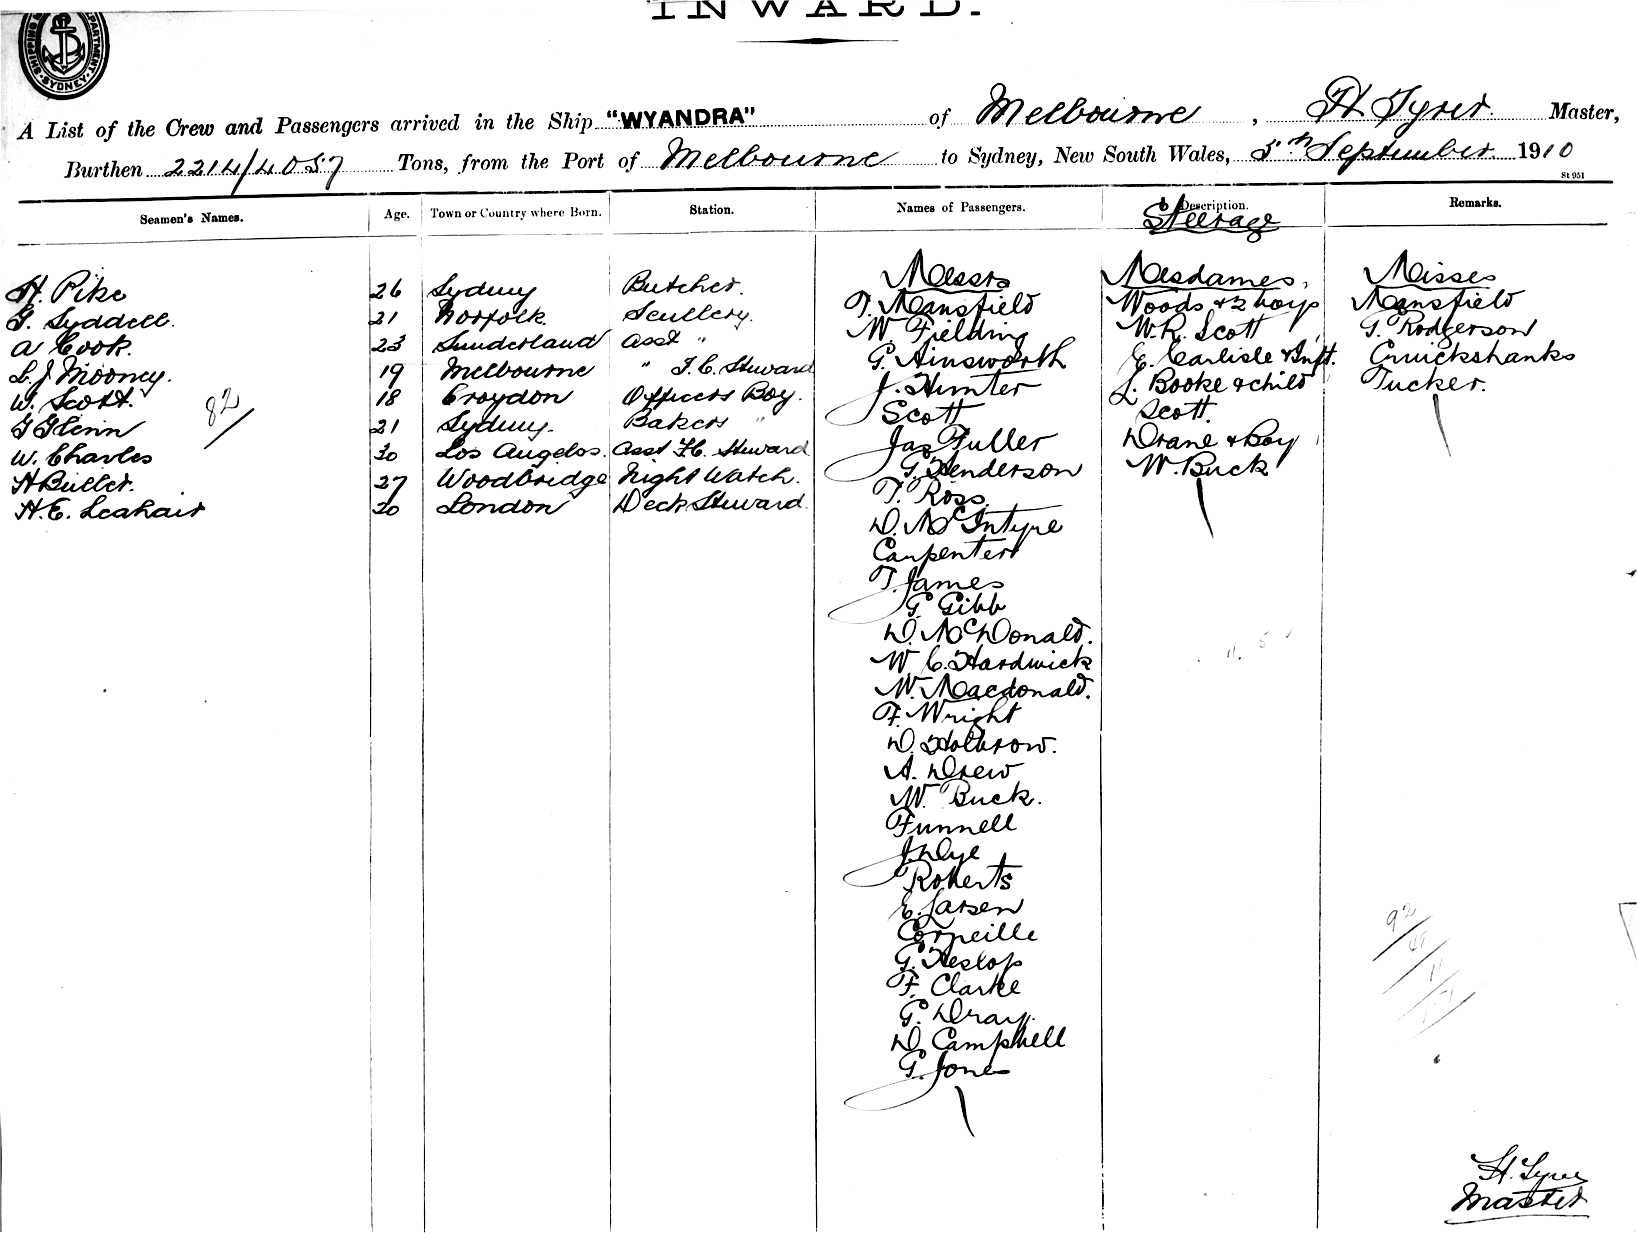 INWARD.
SHIPPING DEPARTMENT SYDNEY
A List of the Crew and Passengers arrived in the Ship "WYANDRA" of Melbourne, H Tyrer Master,
Burthen 2214/4057 Tons, from the Port of Melbourne to Sydney, New South Wales, 5th September 1910
St 951
Seamen's Names. Age. Town or Country where Born. Station. Names of Passengers. Description. Remarks.
Steerage
Messrs Mesdames, Misses
H. Pike 26 Sydney Butcher. T. Mansfield Woods & 2 boys Mansfield
G. Syddell. 21 Norfolk. Scullery. W. Fielding W. R. Scott G. Rodgerson
A Cook. 23 Sunderland Asst " G. Ainsworth E. Carlisle & Inft. Cruickshanks
L. J Mooney. 19 Melbourne " F. C. Steward J. Hunter L. Booke & child Tucker.
W. Scott. 18 Croydon Officers Boy. Scott Scott.
82
G Glenn 21 Sydney. Bakers " Jas Fuller Drane & Boy
W. Charles 30 Los Angelos. Asst F.C. Steward G. Henderson W. Buck
H Butler. 27 Woodbridge Night Watch. T. Ross.
H. E. Leahair 30 London Deck Steward D. McIntyre
Carpenter
T. James
G. Gibb
D. McDonald.
W C. Hardwick
W. Macdonald.
F. Wright
D. Holbrow.
A. Drew
W. Buck.
Funnell
J. Dye
Roberts
E. Larsen
Corneille
G. Heslop
F. Clarke
G. Dray.
D. Campbell
G. Jones
92
H. Tyrer
Master